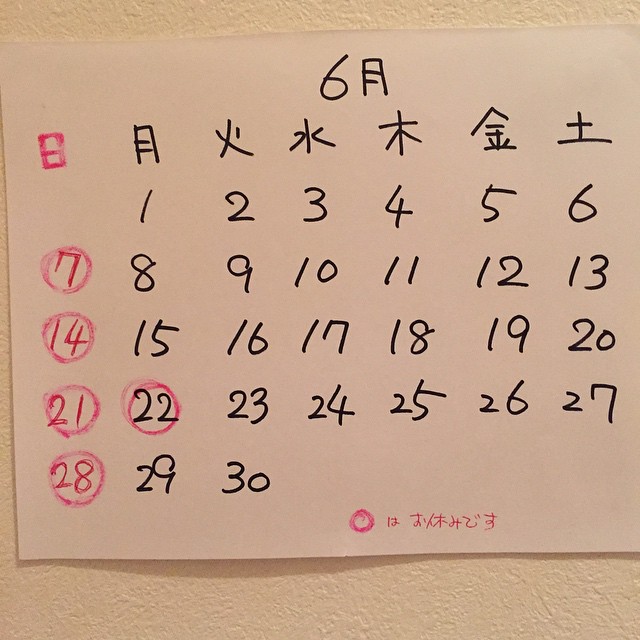 6月
日 月 火 水 木 金 土
1 2 3 4 5 6
7 8 9 10 11 12 13
14 15 16 17 18 19 20
21 22 23 24 25 26 27
28 29 30
○は お休みです